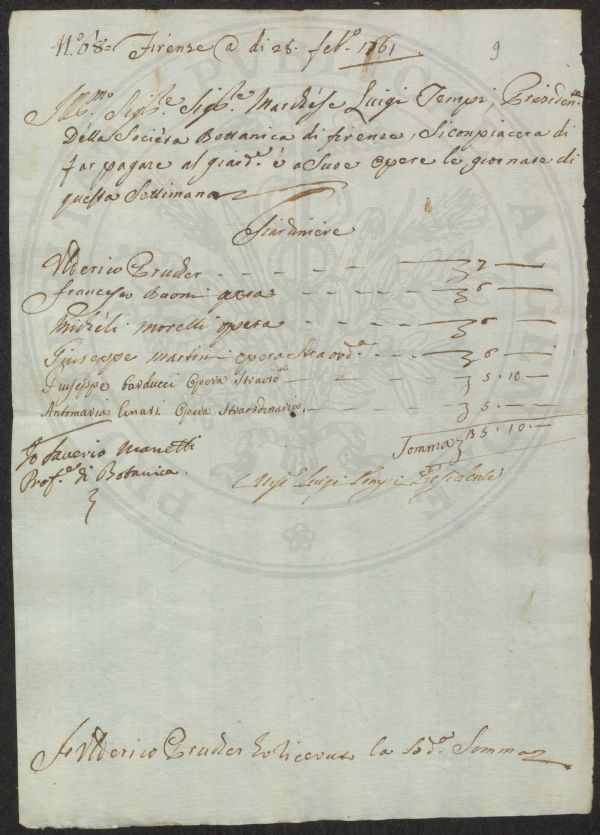 N.o 68= Firenze @ di 28. feb.o 1761
9
Ill.mo Sig.re Sig.re Marchese Luigi Tempi, Presiden.e
Della Societa Bottanica di firenze, Si conpiacera di
far pagare al giard.e é a Suoe opere le giornate di
questa Settimana
Giardiniere
Ulderico Prucker - - - - - - 7 —
francesco Buoni opera - - - - 6 —
Micheli Morelli opera - - - - 6 —
Giuseppe Martini opera Straord.a - 6 —
Giuseppe barducci Opera Straord.a — 5 . 10 —
Antomaria Opera Straordinaria. — 5 . —
Somma 35 . 10 . —
Io Saverio Manetti
Prof.e di Botanica.
Luigi Tempi Presidente
Io Ulderico Prucker ho ricevuto la Sod.a Somma